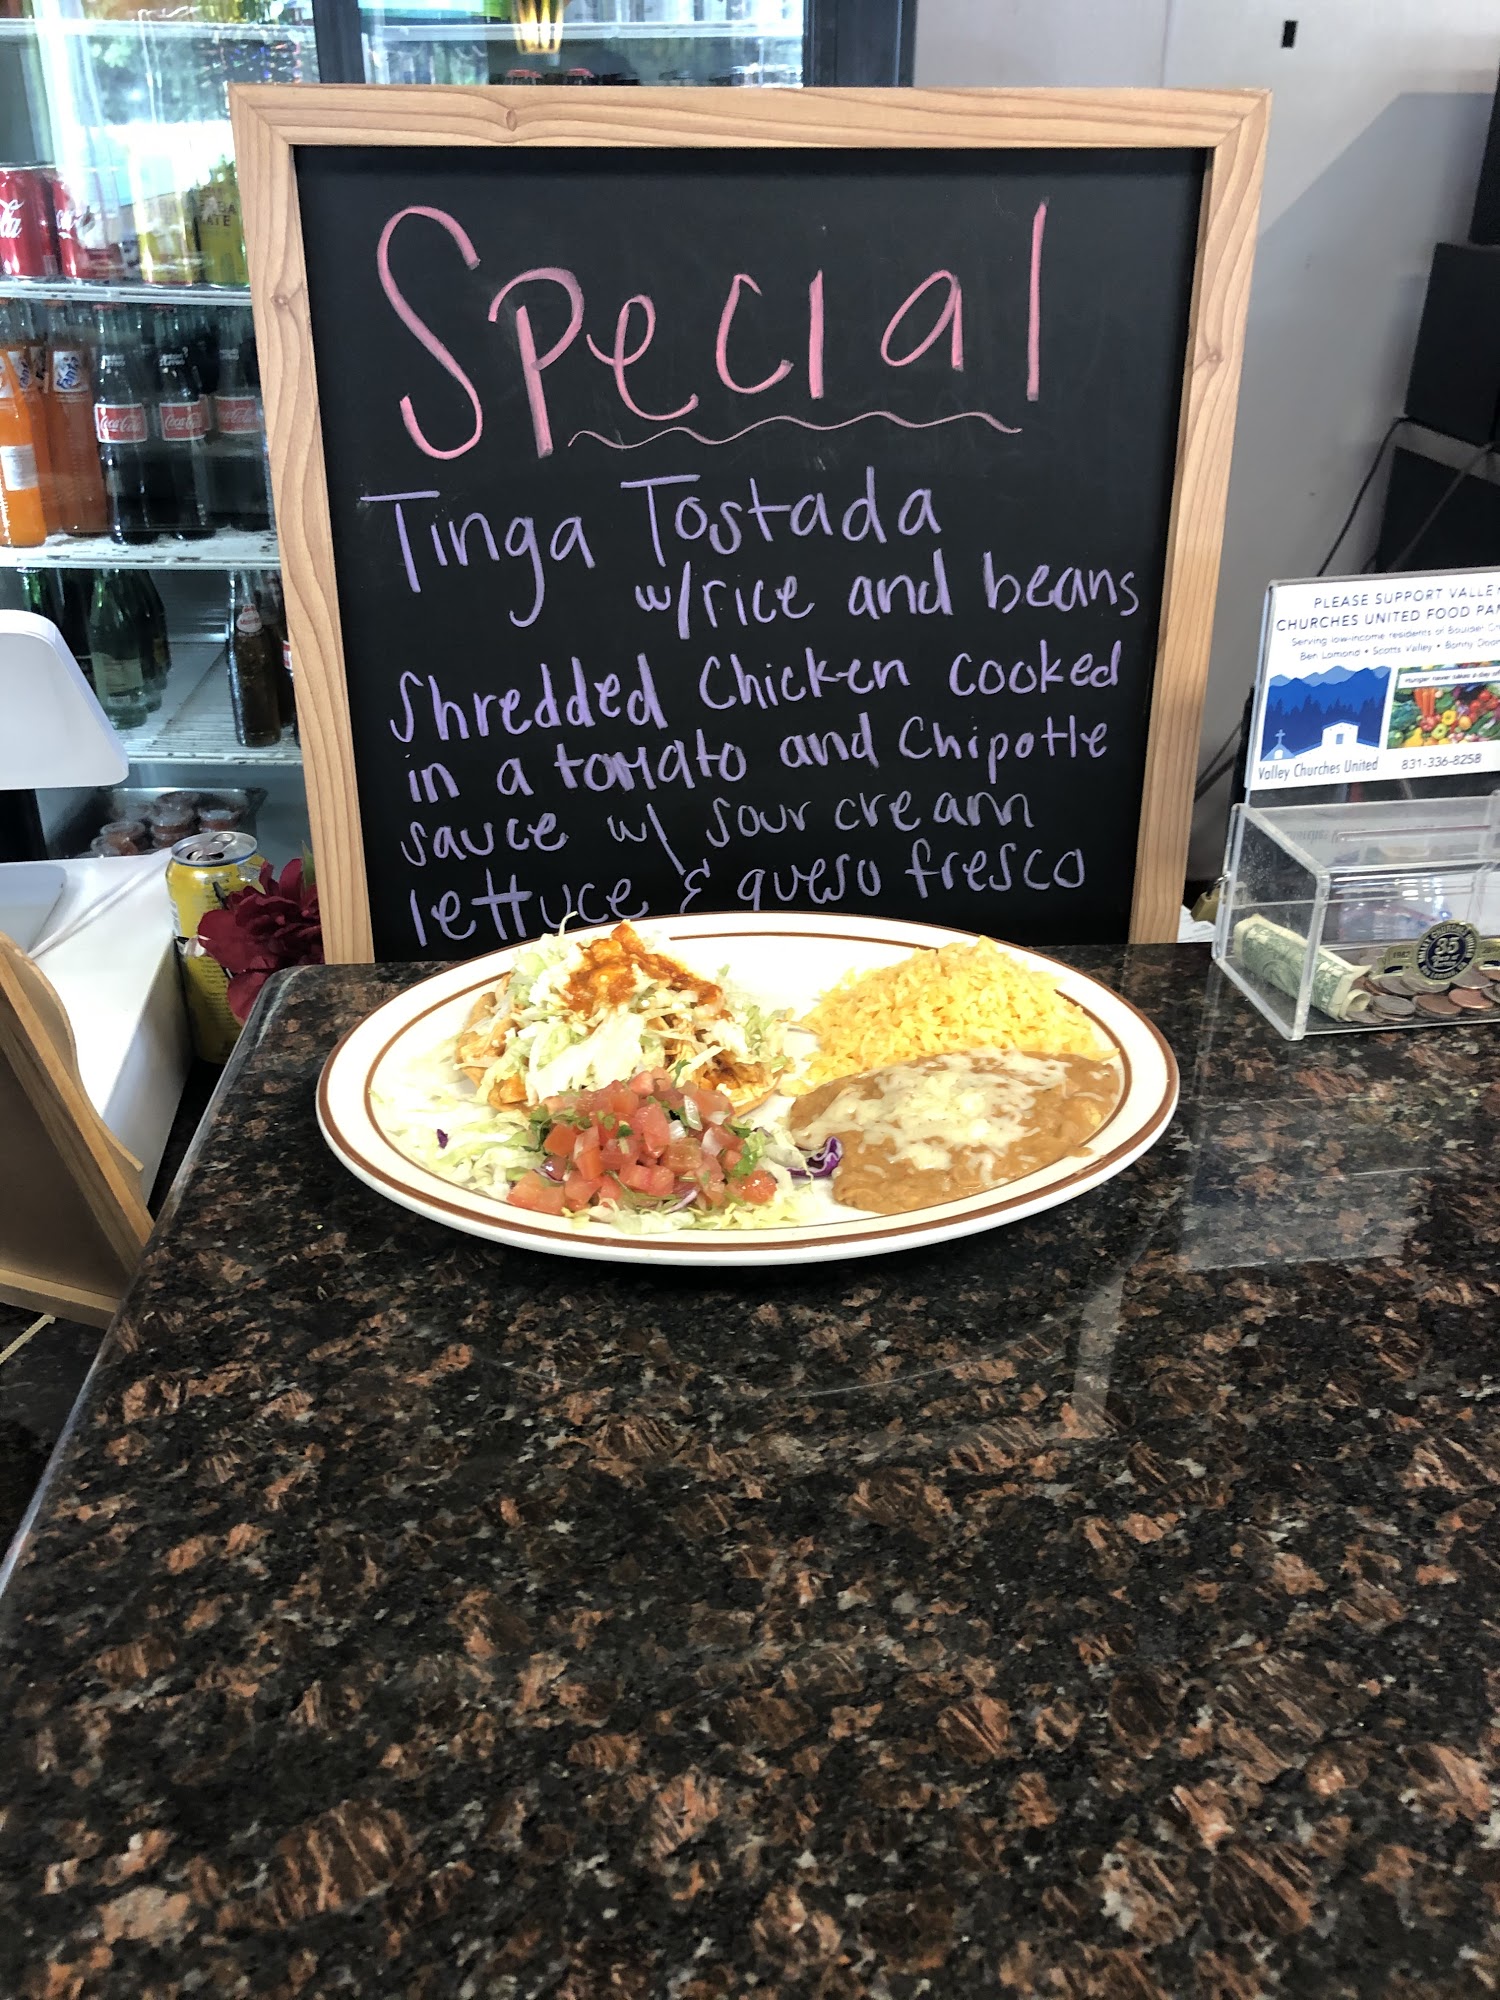 Special
Tinga Tostada
w/rice and beans
Shredded Chicken cooked
in a tomato and Chipotle
sauce w/ sour cream
lettuce & queso fresco
PLEASE SUPPORT VALLEY
CHURCHES UNITED FOOD PAN
Serving low-income residents of Boulder Cr
Ben Lomond • Scotts Valley • Bonny Doon
Hunger never takes a day of
Valley Churches United
831-336-8258
35
Coca-Cola
Coca-Cola
Fanta
MATE